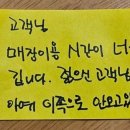 고객님
매장이용 시간이 너
깁니다. 젊으신 고객님
아예 이쪽으로 안오고